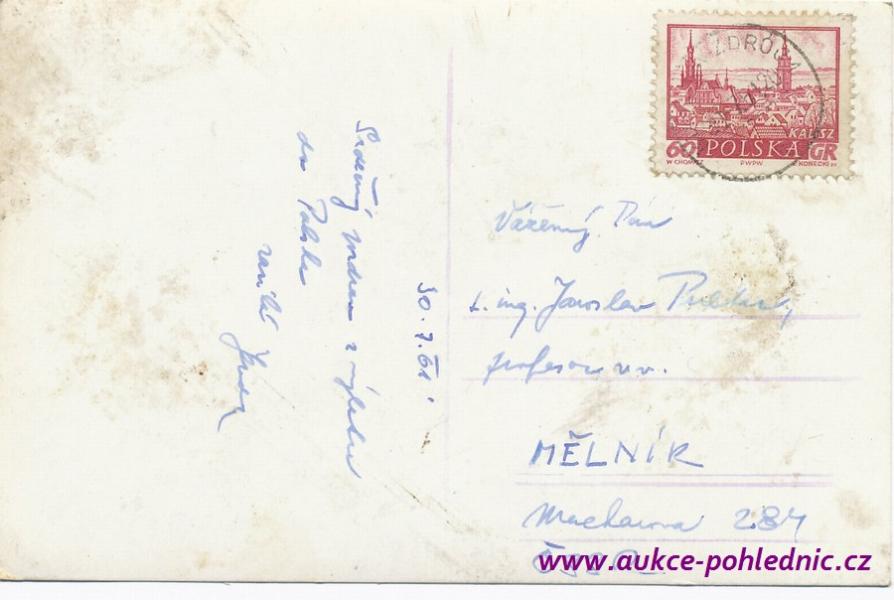 30.7.61
Srdečný pozdrav z výletu
do Polska
ZDRÓJ
KALISZ
60 POLSKA GR
W CHOMICZ PWPW KONECKI
Vážený Pán
ing. Jaroslav
profesor v.v.
MĚLNÍK
Macharova 284
ČSSR
www.aukce-pohlednic.cz